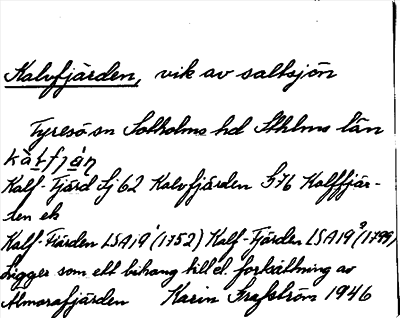 Kalvfjärden, vik av saltsjön
Tyresö sn Sotholms hd Sthlms län
Kalf-Fjärd Lj 62 Kalvfjärden G76 Kalffjär-
den ek
Kalf-Fiärden LSA19¹(1752) Kalf-Fjärden LSA19²(1799)
Ligger som ett bihang till el. fortsättning av
Almorafjärden Karin Grafström 1946